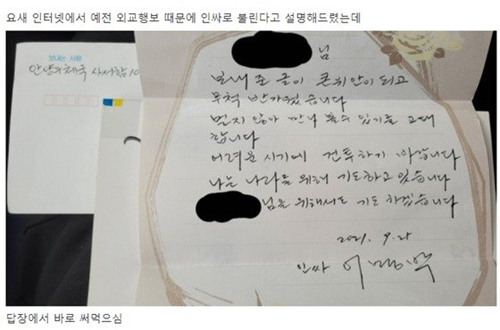 요새 인터넷에서 예전 외교행보 때문에 인싸로 불린다고 설명해드렸는데
보내는 사람
안양우체국 사서함 10
님
보내 준 글이 큰 위안이 되고
무척 반가웠습니다
멀지 않아 만나 볼수 있기를 고대
합니다
어려운 시기에 건투하기 바랍니다
나는 나라를 위해 기도하고 있습니다
님을 위해서도 기도 하겠습니다
2021. 9.
인싸 이명박
답장에서 바로 써먹으심